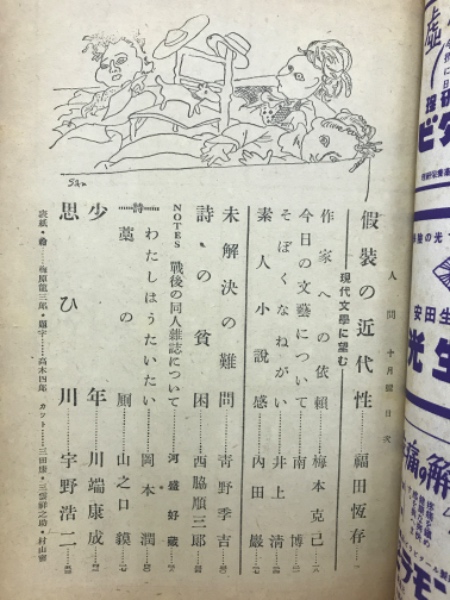 人間 十月號目次
假裝の近代性………福田恆存
現代文學に望む
作家への依賴………梅本克己
今日の文藝について………南博
そぼくなねがい………井上清
素人小說感………內田巖
未解決の難問………靑野季吉
詩の貧困………西脇順三郞
NOTES 戰後の同人雜誌について………河盛好藏
詩
わたしはうたいたい………岡本潤
藁の厠………山之口貘
少年………川端康成
思ひ川………宇野浩二
表紙・梅原龍三郞・題字……高木四郞 カット……三田康・三雲祥之助・村山密
San
ビタ
安田生
光生
痛の解
ラモン